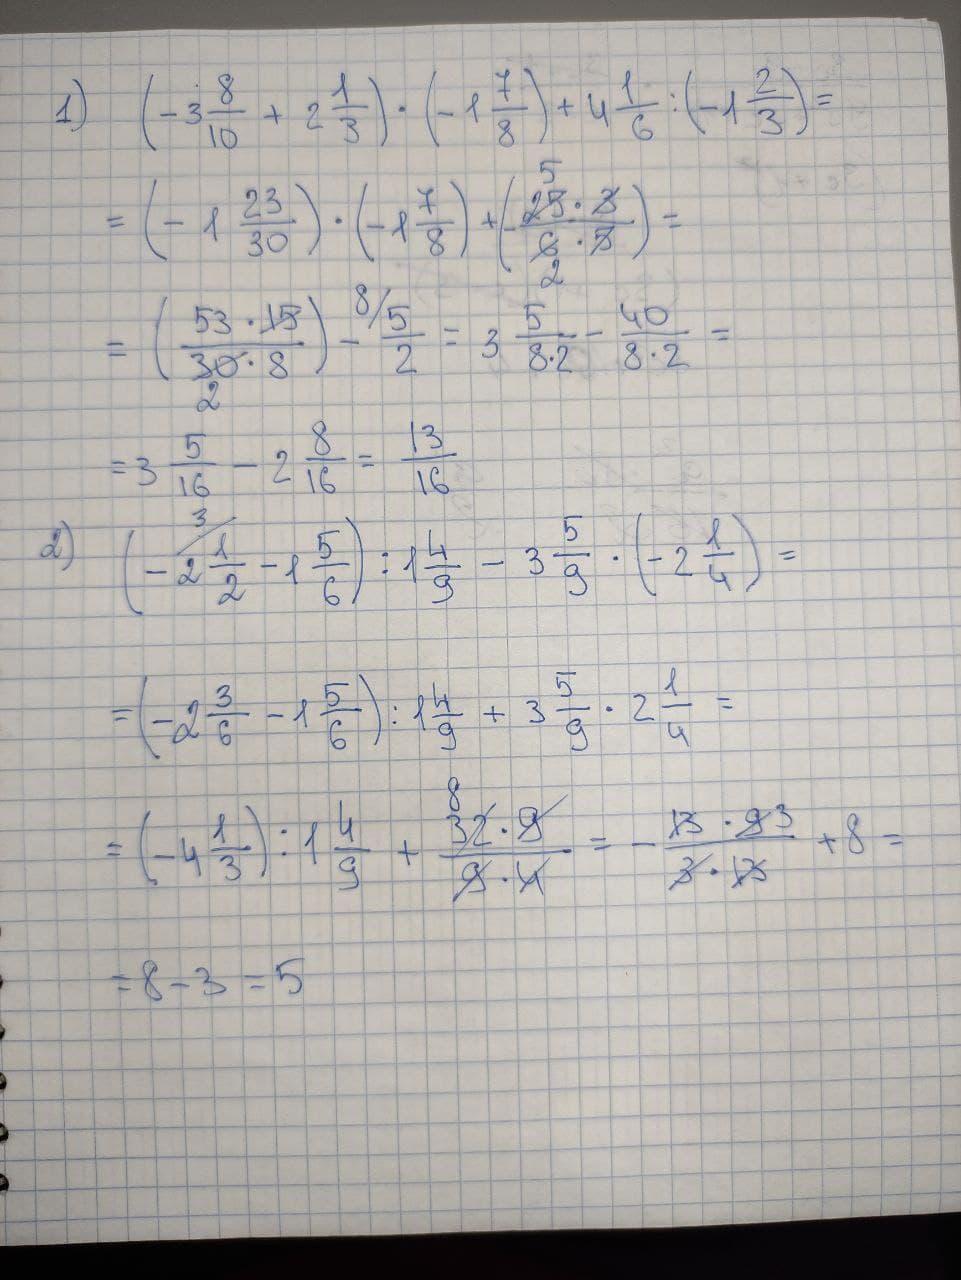 1) (-3 8/10 + 2 1/3) · (-1 7/8) + 4 1/6 : (-1 2/3) =
= (-1 23/30) · (-1 7/8) + (- 25 · 3 / 6 · 5) =
5
2
= (53 · 15 / 30 · 8) - 8/ 5/2 = 3 5/8·2 - 40/8·2 =
2
= 3 5/16 - 2 8/16 = 13/16
2) (-2 1/2 - 1 5/6) : 1 4/9 - 3 5/9 · (-2 1/4) =
3
= (-2 3/6 - 1 5/6) : 1 4/9 + 3 5/9 · 2 1/4 =
= (-4 1/3) : 1 4/9 + 32 · 9 / 9 · 4 = - 13 · 9 3 / 3 · 13 + 8 =
8
= 8 - 3 = 5